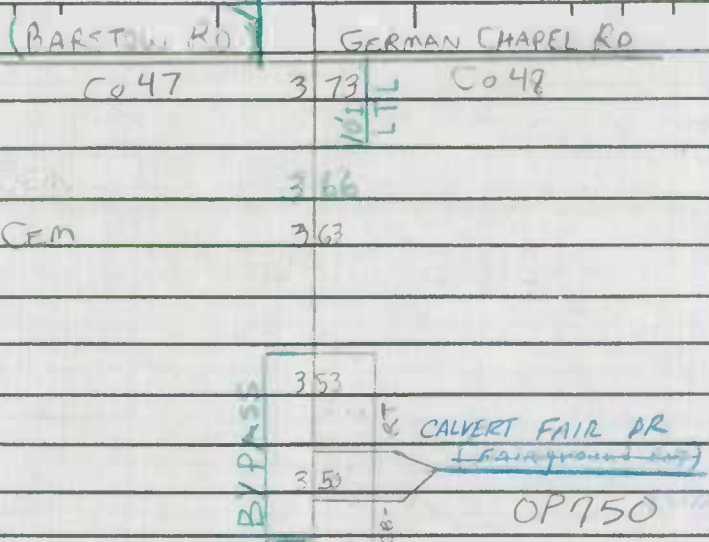 (BARSTOW RD) GERMAN CHAPEL RD
Co 47 3 73 Co 48
10'1 LTL
CEM 3 66
CEM 3 63
3 53
BYPASS
RT
CALVERT FAIR DR
3 50
OP750